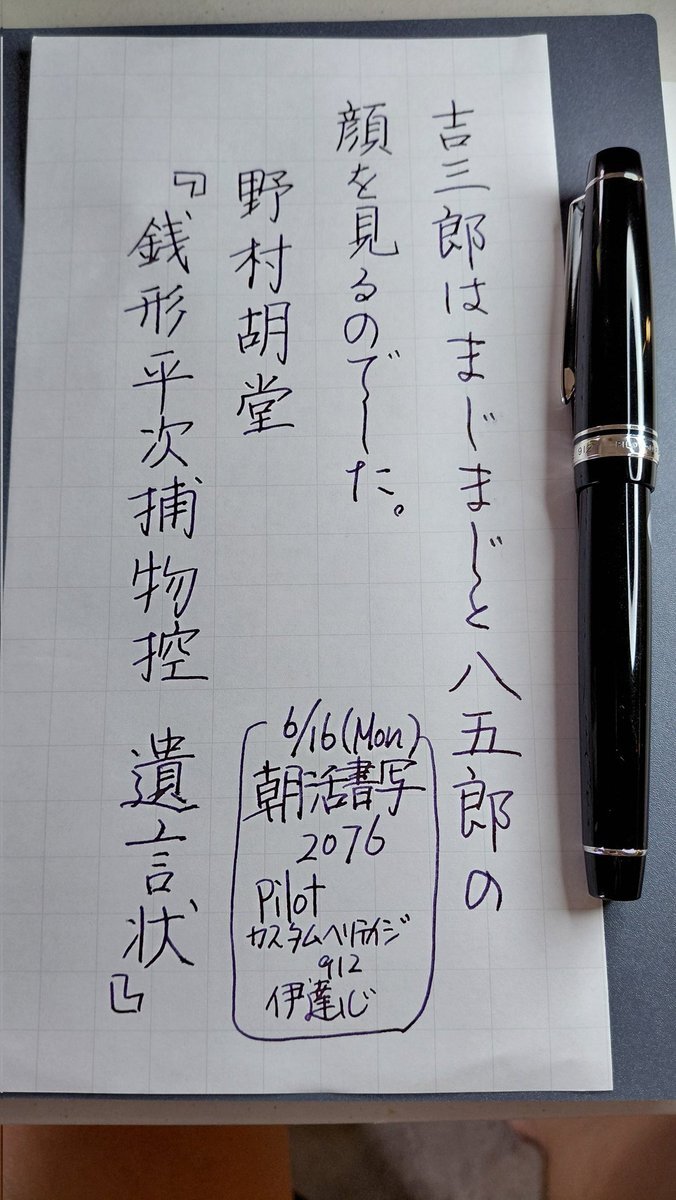 吉三郎はまじまじと八五郎の
顔を見るのでした。
野村胡堂
『銭形平次捕物控 遺言状』
6/16(Mon)
朝活書写
2076
Pilot
カスタムヘリテイジ
912
伊達心
912
PILOT